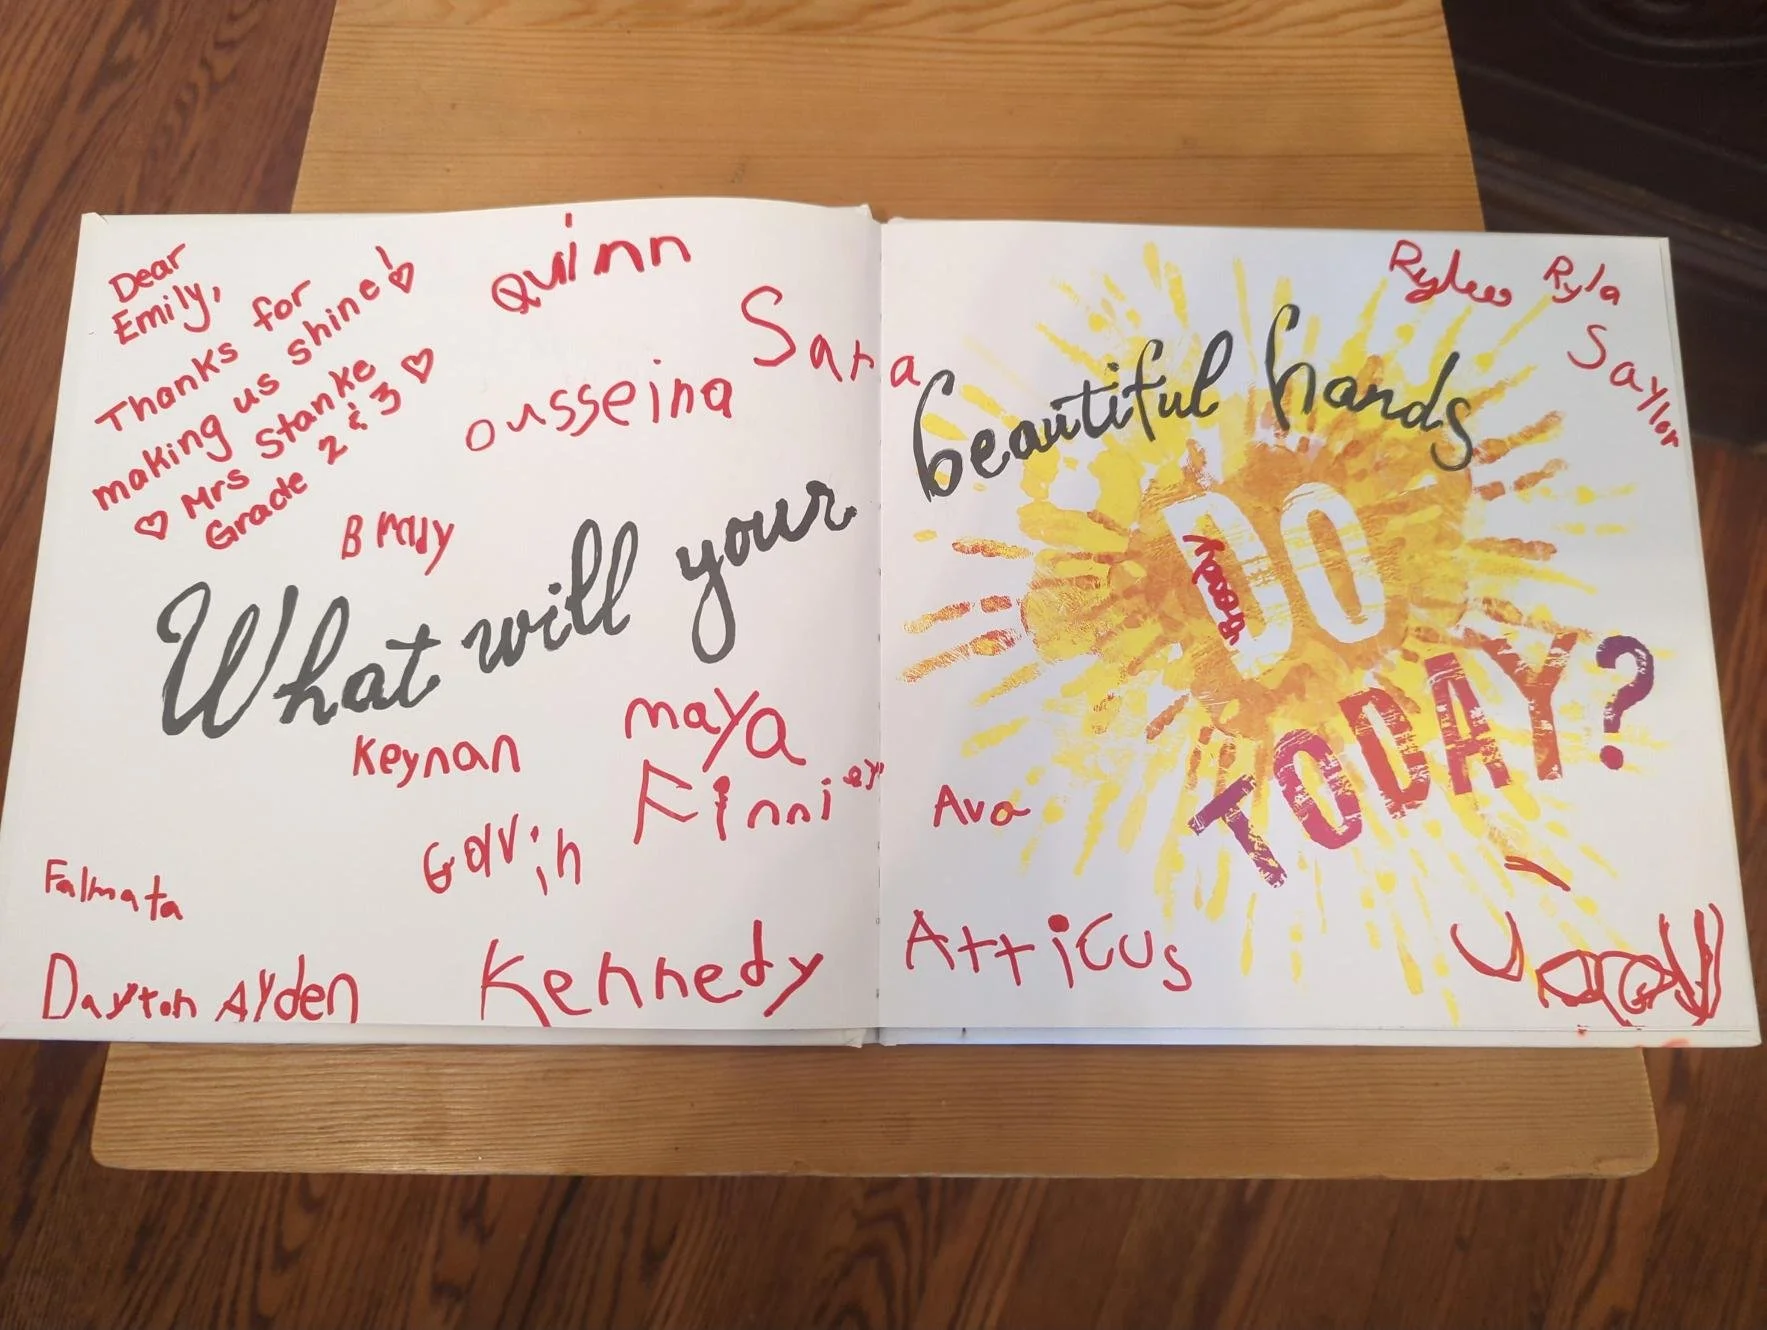 Dear
Emily,
Thanks for
making us shine!
Mrs Stanke
Grade 2 & 3
Quinn
Sara
ousseina
Brady
What will your
Keynan
maya
Finnley
Galvin
Falmata
Dayton Ayden
Kennedy
Rylee Ryla
Saylor
beautiful hands
DO
TODAY?
Ava
Atticus